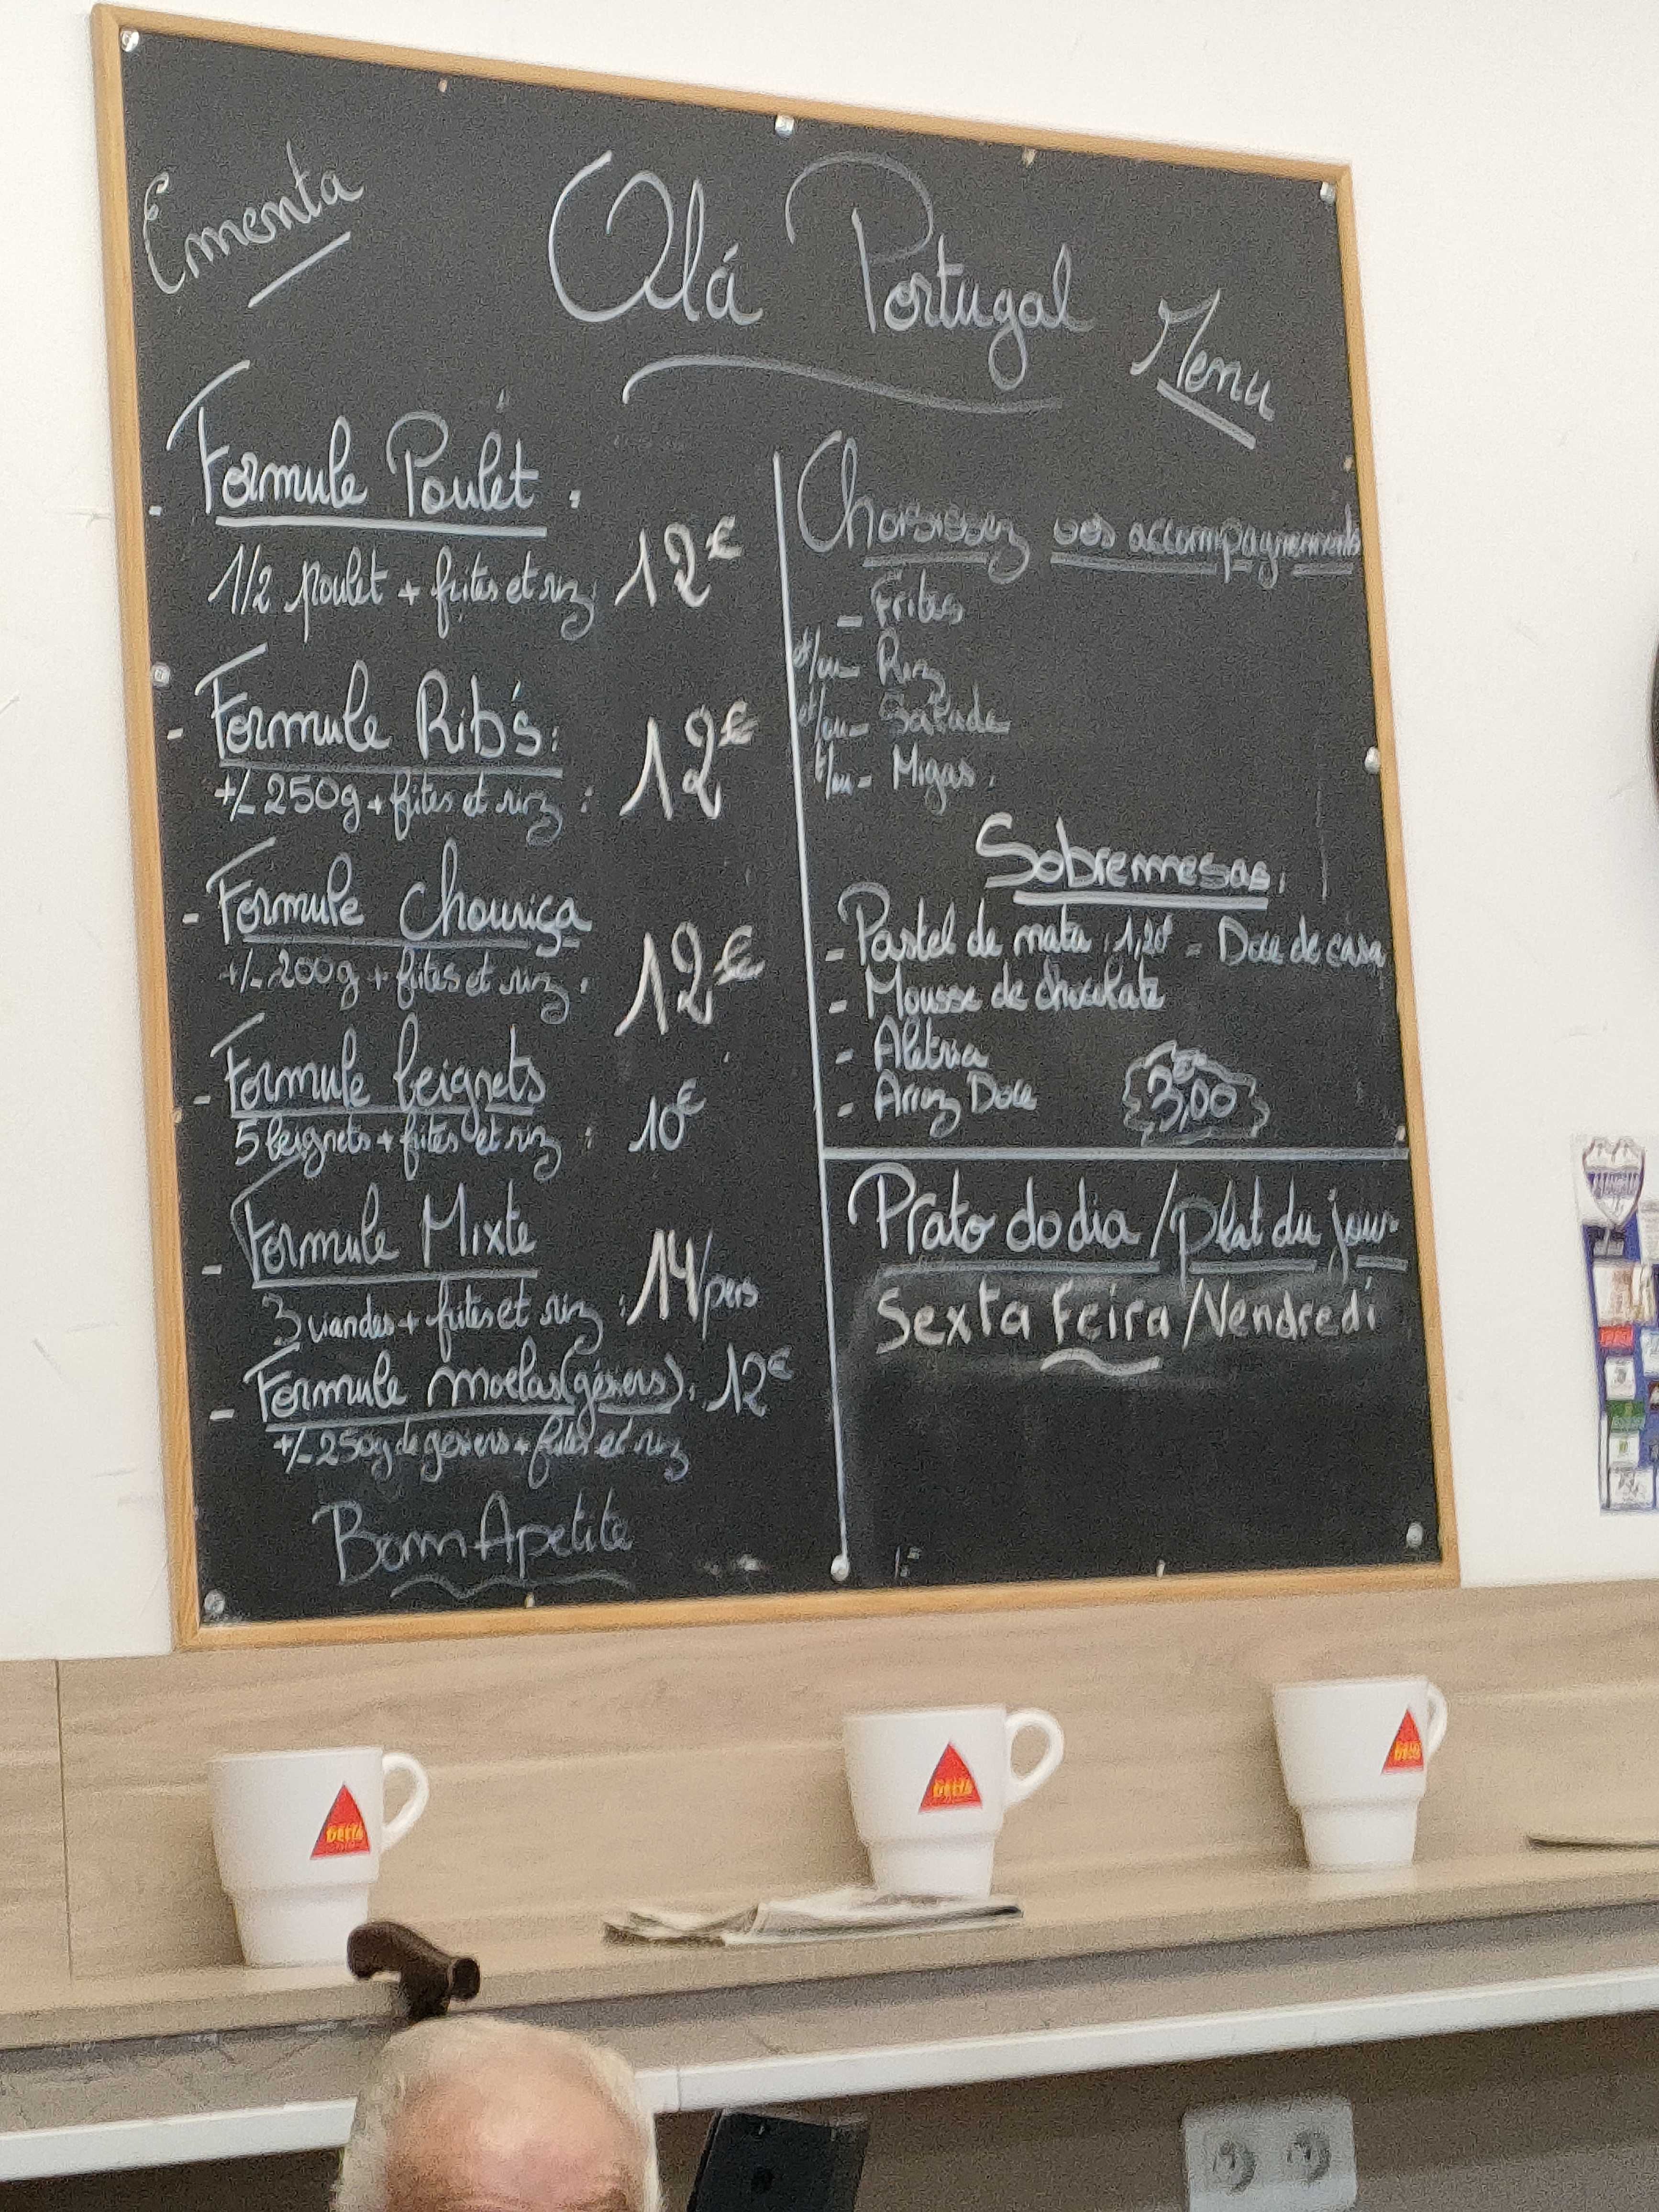 Ementa
Olá Portugal
Menu
- Formule Poulet :
1/2 poulet + frites et riz : 12€
- Formule Rib's :
+/- 250g + frites et riz : 12€
- Formule Chouriça
+/- 200g + frites et riz : 12€
- Formule beignets
5 beignets + frites et riz : 10€
- Formule Mixte
3 viandes + frites et riz : 14/pers
- Formule moelas (gésiers) : 12€
+/- 250g de gésiers + frites et riz
Bom Apetite
Choisissez vos accompagnements
- Frites
et/ou - Riz
et/ou - Salade
et/ou - Migas.
Sobremesas:
- Pastel de nata : 1,20€ - Doce de casa
- Mousse de chocolate
- Aletria
- Arroz Doce
3,00€
Prato do dia / plat du jour
Sexta Feira / Vendredi
DELTA
DELTA
DELTA